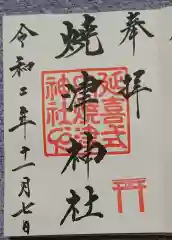 奉拝
焼津神社
延喜式
焼津
神社
令和二年十一月七日